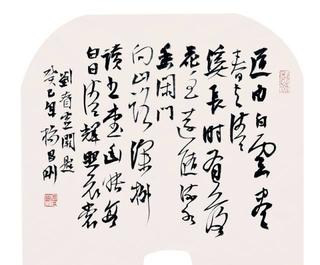 道由白雲盡
春与清
溪長时有落
花至遠随流水
香閑門
向山路深柳
读书堂幽映每
白日清輝照衣裳
劉眘虛闕題
癸巳年楊昌刚